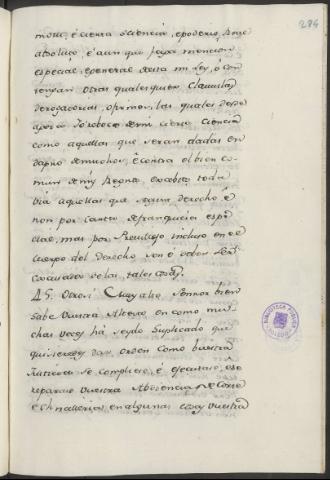 284
motu, é cierta sciencia, epoderio, Real
absoluto, é aun que fagan mencion
especial, egeneral desta mi Ley, ó con
tengan otras qualesquier clausulas
derogatorias, ofirmes, las quales desde
agora Yo reboco demi cierta ciencia
como aquellas que seran dadas en
dapno de muchos, é contra el bien co-
mun de mis Regnos, excebto toda
via aquellas que segun derecho é
non por cartas de franqueza espe
ciales, mas por Previlegio incluso en el
cuerpo del derecho son ó deben ser
escusados de las tales cosas.
45. Otrosi Muy alto Sennor bien
sabe vuestra Alteza en como mu-
chas veces há seydo suplicado que
quisiesedes dar orden como vuestra
Justicia se compliese, é ejecutase, ese
reparase vuestra Abdiencia, é Corte
é Chancilleria en algunas cosas vuestra
BIBLIOTECA PUBLICA
TOLEDO